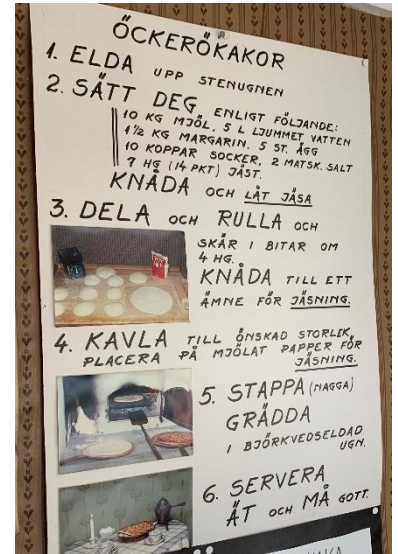 ÖCKERÖKAKOR
1. ELDA UPP STENUGNEN
2. SÄTT DEG ENLIGT FÖLJANDE:
10 KG MJÖL, 5 L LJUMMET VATTEN
1½ KG MARGARIN, 5 ST. ÄGG
10 KOPPAR SOCKER, 2 MATSK. SALT
7 HG (14 PKT) JÄST.
KNÅDA OCH LÅT JÄSA
3. DELA OCH RULLA OCH
SKÄR I BITAR OM
4 HG.
KNÅDA TILL ETT
ÄMNE FÖR JÄSNING.
4. KAVLA TILL ÖNSKAD STORLEK,
PLACERA PÅ MJÖLAT PAPPER FÖR
JÄSNING.
5. STAPPA (NAGGA)
GRÄDDA
I BJÖRKVEDSELDAD
UGN.
6. SERVERA
ÄT OCH MÅ GOTT.